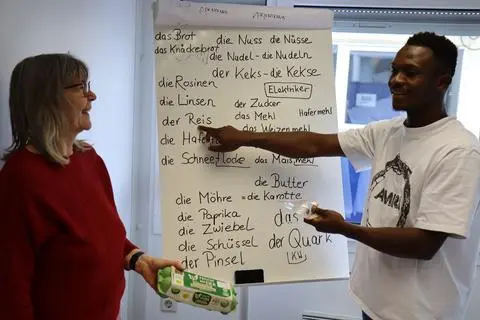 das Brot
das Knäckebrot
die Nuss die Nüsse
die Nudel - die Nudeln
der Keks - die Kekse
die Rosinen
Elektriker
die Linsen
der Zucker
der Reis
das Mehl
Hafermehl
die
das Weizenmehl
die Schneeflocke
das Mais,mehl
die Butter
die Möhre = die Karotte
die Paprika
das
die Zwiebel
die Schüssel
der Quark
der Pinsel
KW